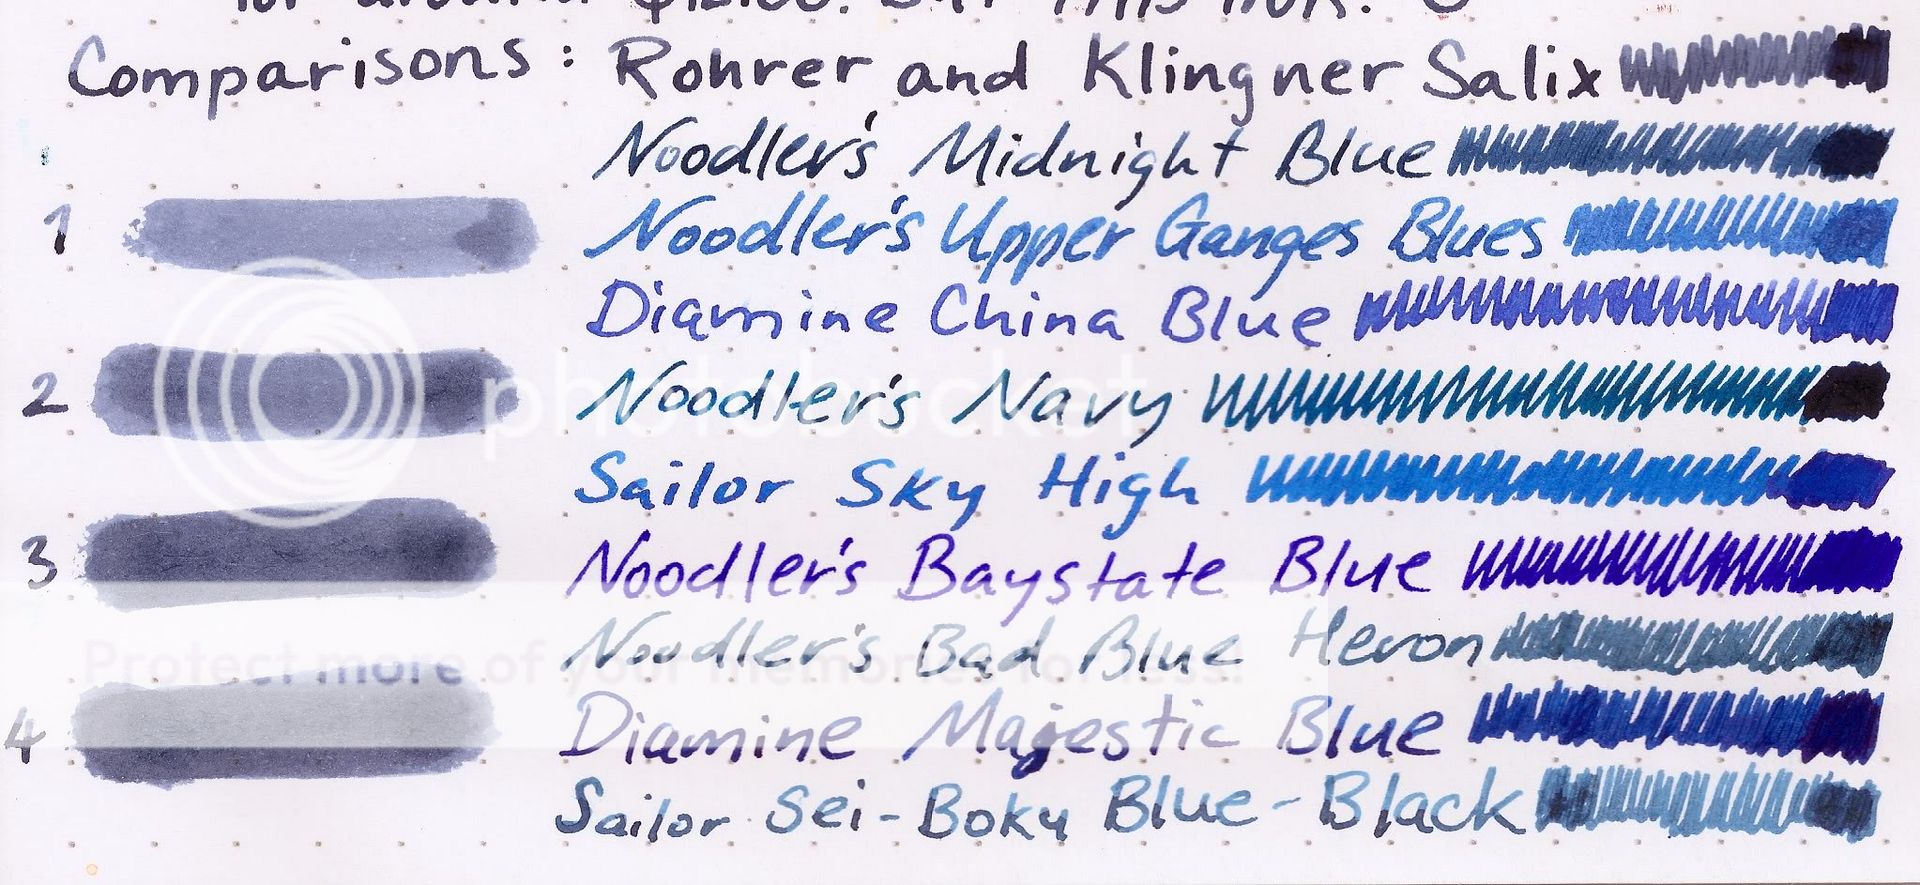 for around $12.00. But this ink.
Comparisons: Rohrer and Klingner Salix
Noodler's Midnight Blue
1 Noodler's Upper Ganges Blues
Diamine China Blue
2 Noodler's Navy
photobucket
Sailor Sky High
3 Noodler's Baystate Blue
Noodler's Bad Blue Heron
Protect more of your memories for less!
4 Diamine Majestic Blue
Sailor Sei-Boku Blue-Black